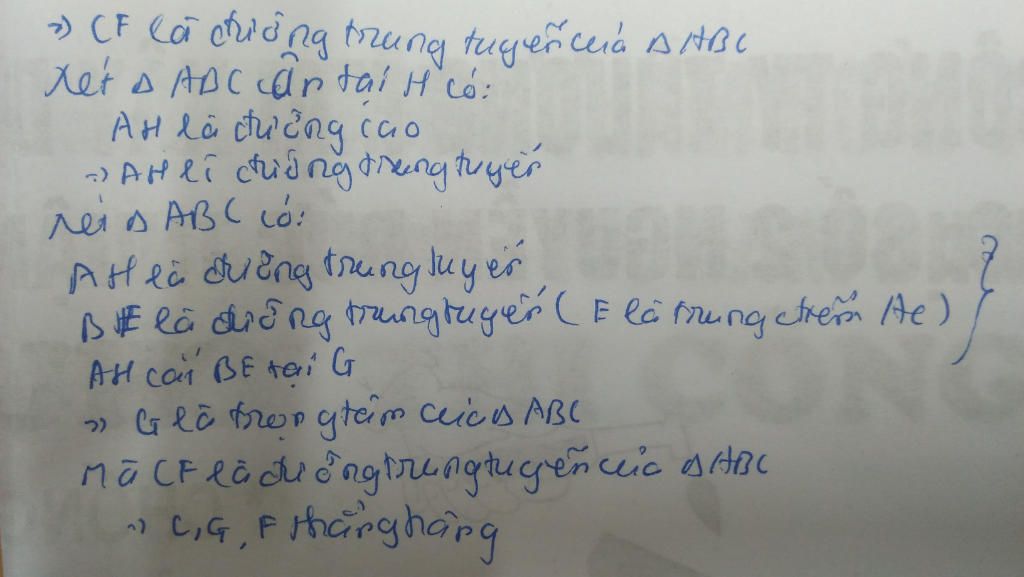 => CF là đường trung tuyến của Δ ABC
Xét Δ ABC cân tại H có:
AH là đường cao
=> AH là đường trung tuyến
Xét Δ ABC có:
AH là đường trung tuyến
BE là đường trung tuyến ( E là trung điểm AC )
AH cắt BE tại G
=> G là trọng tâm của Δ ABC
Mà CF là đường trung tuyến của Δ ABC
=> C, G, F thẳng hàng